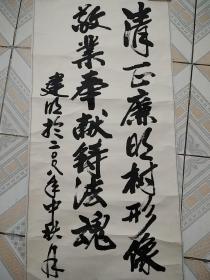 清正廉明树形像
敬业奉献铸法魂
建明於二〇〇八年中秋月